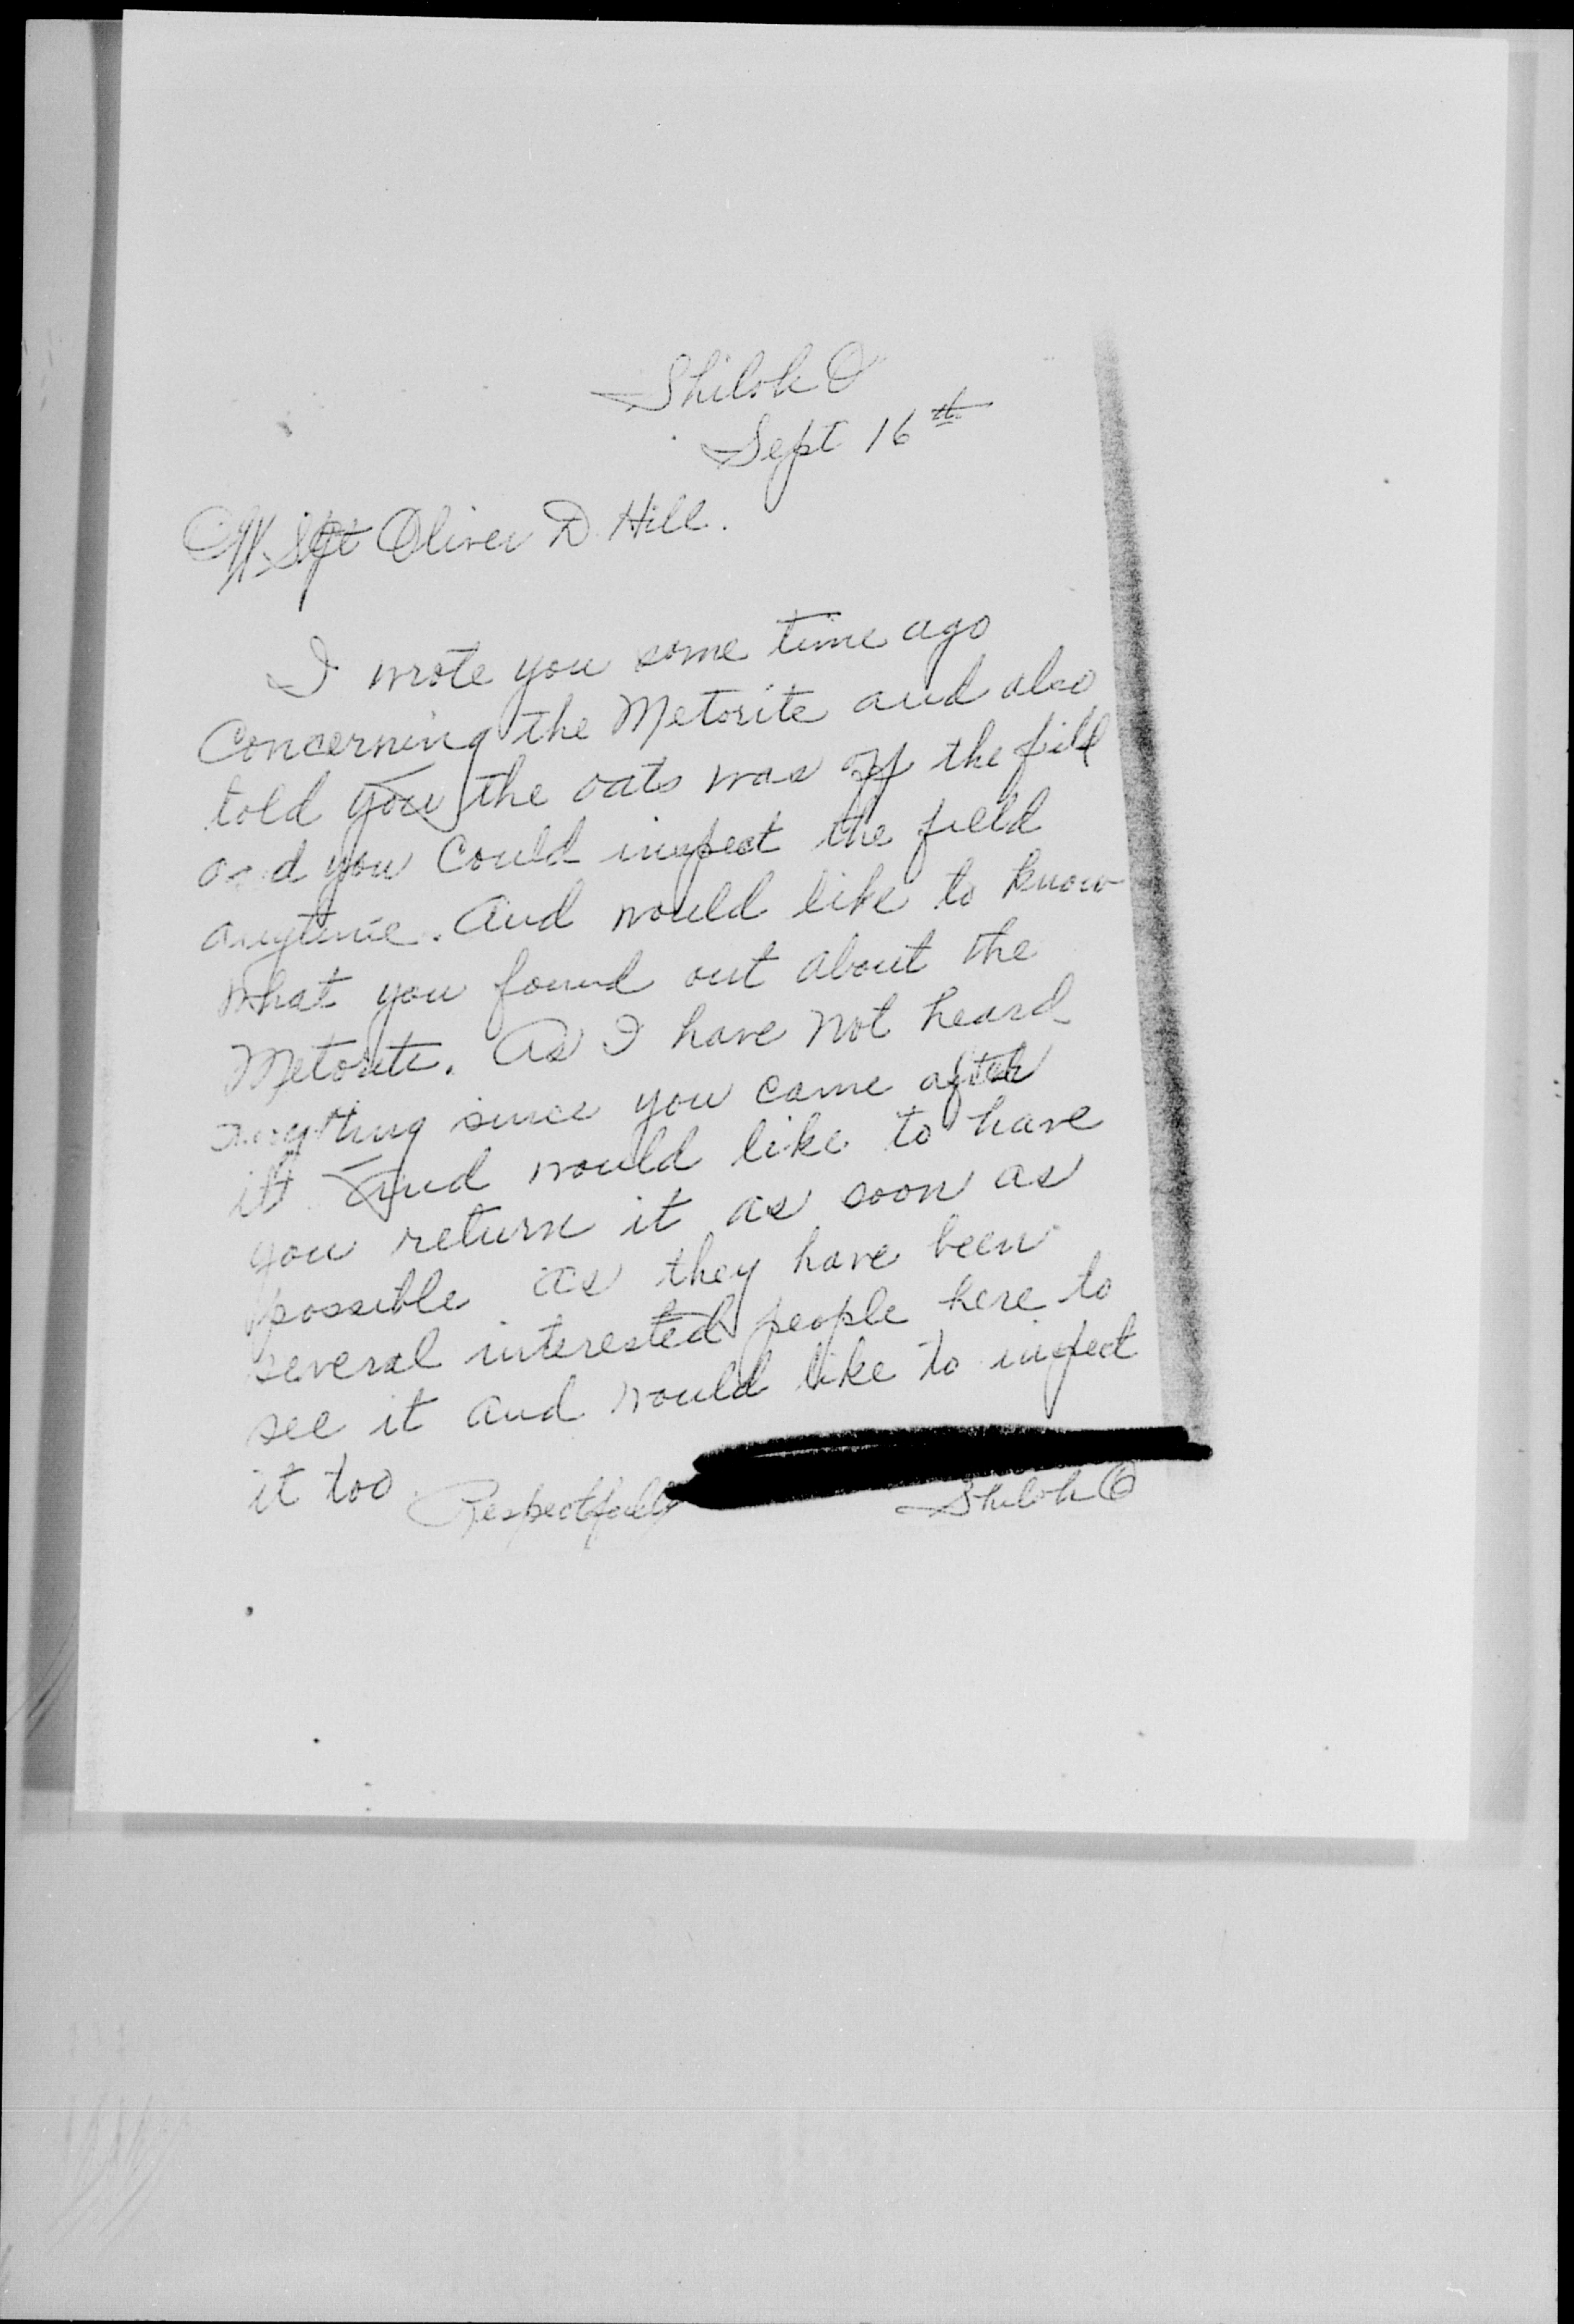 Shiloh O
Sept 16th
M Sgt Oliver D. Hill.
I wrote you some time ago
Concerning the Metorite and also
told you the oats was off the field
and you Could inspect the field
anytime. And would like to know
what you found out about the
Metorite. As I have not heard
anything since you came after
it. And would like to have
you return it as soon as
possible as they have been
several interested people here to
see it and would like to inspect
it too.
Respectfully
Shiloh O